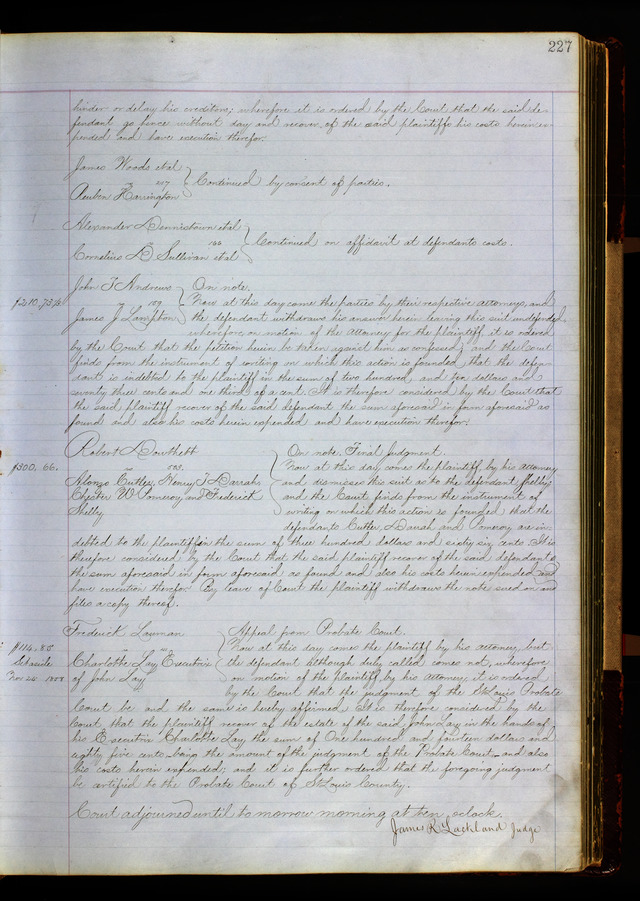 227
hinder or delay his creditors; wherefore it is ordered by the Court that the said de-
fendant go hence without day and recover of the said plaintiffs his costs herein ex-
pended and have execution therefor.
James Woods et al
Reuben Harrington
Continued by consent of parties.
Alexander Dennistown et al
vs
Cornelius D Sullivan et al
Continued on affidavit at defendants costs.
John T Andrews
vs 189
James J Lampton
On note.
$210,73 1/3
Now at this day come the parties by their respective attorneys, and
the defendant withdraws his answer herein leaving this suit undefended,
wherefore on motion of the Attorney for the plaintiff it is ordered
by the Court that the petition herein be taken against him as confessed; and the Court
finds from the instrument of writing on which this action is founded, that the defen-
dant is indebted to the plaintiff in the sum of two hundred, and ten dollars and
seventy three cents and one third of a cent. It is therefore considered by the Court that
the said plaintiff recover of the said defendant the sum aforesaid in form aforesaid as
found and also his costs herein expended and have execution therefor.
Robert Douthett
vs
Alonzo Cutler, Henry T Darrah
Chester W Pomeroy and Frederick
Shelby
$300,66.
On note Final Judgment.
Now at this day comes the plaintiff by his attorney
and dismisses his suit as to the defendant Shelby
and the Court finds from the instrument of
writing on which this action is founded that the
defendants Cutler, Darrah and Pomeroy are in-
debted to the plaintiff in the sum of three hundred dollars and sixty six cents. It is
therefore considered by the Court that the said plaintiff recover of the said defendants
the sum aforesaid in form aforesaid as found and also his costs herein expended and
have execution therefor. By leave of Court the plaintiff withdraws the note sued on and
files a copy thereof.
Frederick Layman
vs
Charlotte Lay Executrix
of John Lay
$114.85
Nov 24
Appeal from Probate Court.
Now at this day comes the plaintiff by his attorney but
the defendant although duly called comes not, wherefore
on motion of the plaintiff by his attorney it is ordered
by the Court that the judgment of the St Louis Probate
Court be and the same is hereby affirmed. It is therefore considered by the
Court, that the plaintiff recover of the estate of the said John Lay in the hands of
his Executrix Charlotte Lay the sum of One hundred and fourteen dollars and
eighty five cents being the amount of the judgment of the Probate Court and also
his costs herein expended; and it is further ordered that the foregoing judgment
be certified to the Probate Court of St Louis County.
Court adjourned until tomorrow morning at ten oclock.
James R Lackland Judge